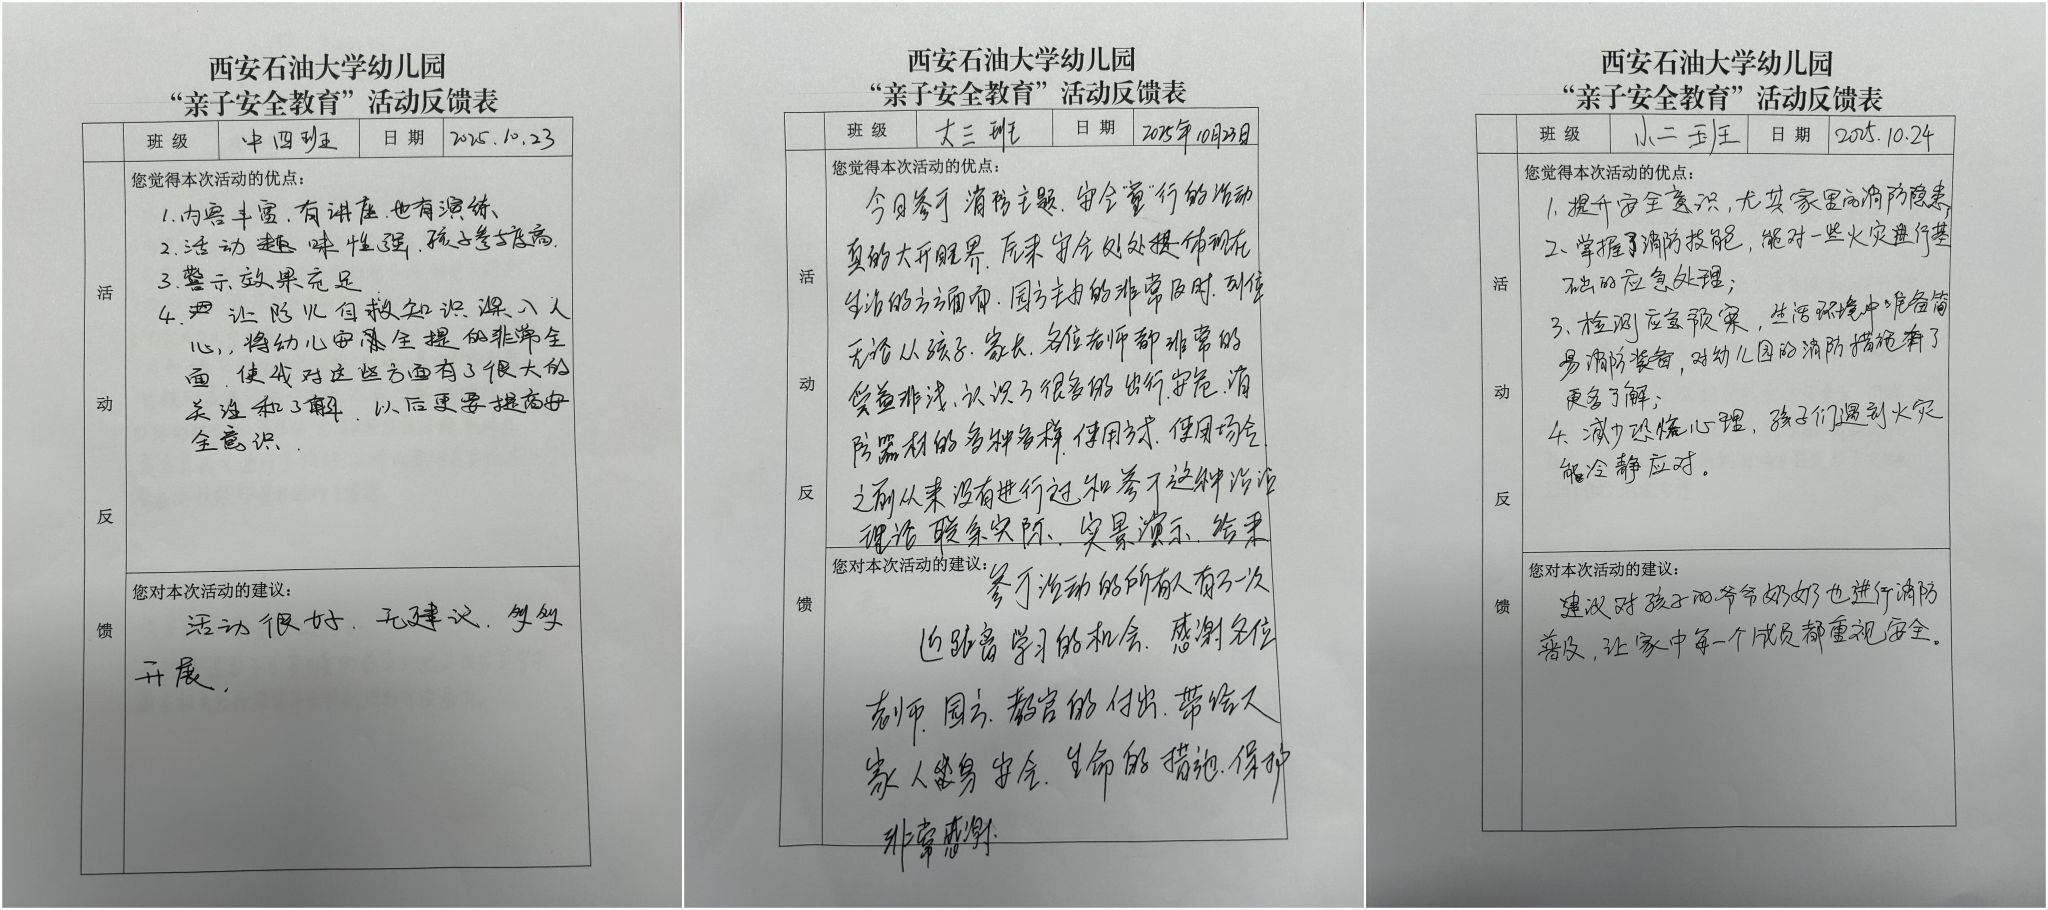 西安石油大学幼儿园
“亲子安全教育”活动反馈表
班 级
中四班
日 期
2025.10.23
活动反馈
您觉得本次活动的优点：
1.内容丰富.有讲座.也有演练、
2.活动趣味性强.孩子参与度高.
3.警示效果充足.
4.让防儿自救知识深入人
心,,将幼儿安全提的非常全
面.使我对这些方面有了很大的
关注和了解.以后更要提高安
全意识.
您对本次活动的建议：
活动很好.无建议.多多
开展.
西安石油大学幼儿园
“亲子安全教育”活动反馈表
班 级
大三班
日 期
2025年10月23日
活动反馈
您觉得本次活动的优点：
今日参于消防主题.安全“童”行的活动
真的大开眼界.后来安全处处提体现在
生活的方方面面.园方主办的非常及时.到位
无论从孩子.家长.各位老师都非常的
受益非浅、认识了很多的出行.安危.消
防器材的各种各样.使用方式.使用场合.
之前从来没有进行过和参于这种活动
理论联系实际、实景演示.给来
您对本次活动的建议：
参于活动的所有人有了一次
近距离学习的机会.感谢各位
老师.园方.教官的付出.带给大
家人身安全.生命的措施.保护
非常感谢.
西安石油大学幼儿园
“亲子安全教育”活动反馈表
班 级
小二班
日 期
2025.10.24
活动反馈
您觉得本次活动的优点：
1、提升安全意识，尤其家里的消防隐患；
2、掌握了消防技能，能对一些火灾进行基
础的应急处理；
3、检测应急预案，生活环境中准备简
易消防装备，对幼儿园的消防措施有了
更多了解；
4、减少恐慌心理，孩子们遇到火灾
能冷静应对。
您对本次活动的建议：
建议对孩子的爷爷奶奶也进行消防
普及，让家中每一个成员都重视安全。